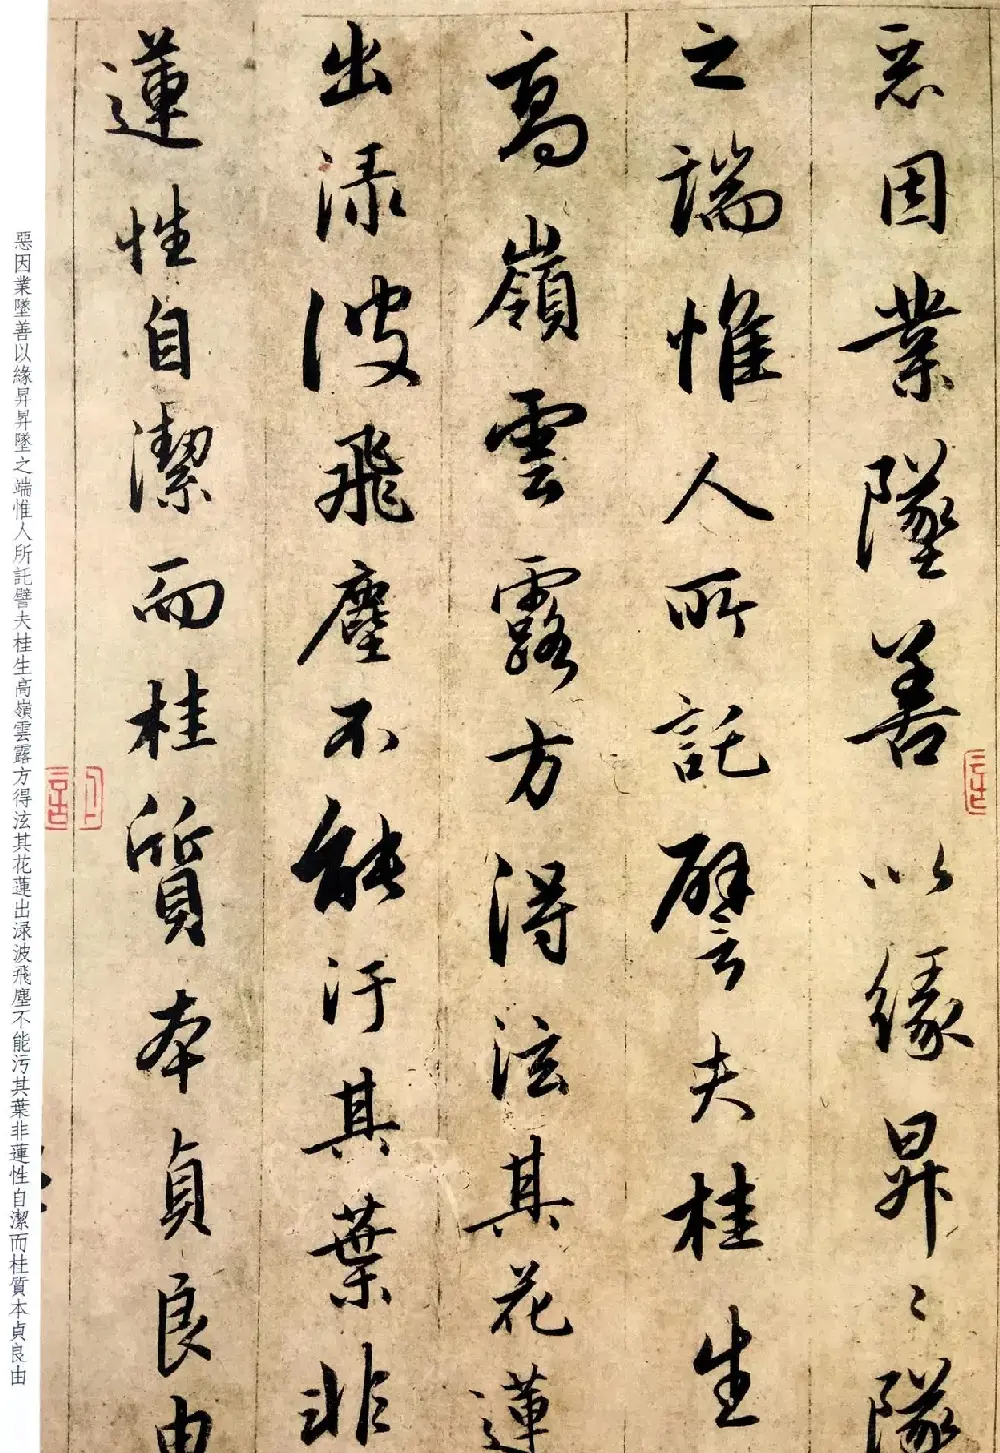 惡因業墜善以緣昇〻墜
之端惟人所託譬夫桂生
高嶺雲露方得泫其花蓮
出渌波飛塵不能汙其葉非
蓮性自潔而桂質本貞良由
惡因業墜善以緣昇昇墜之端惟人所託譬夫桂生高嶺雲露方得泫其花蓮出渌波飛塵不能污其葉非蓮性自潔而桂質本貞良由